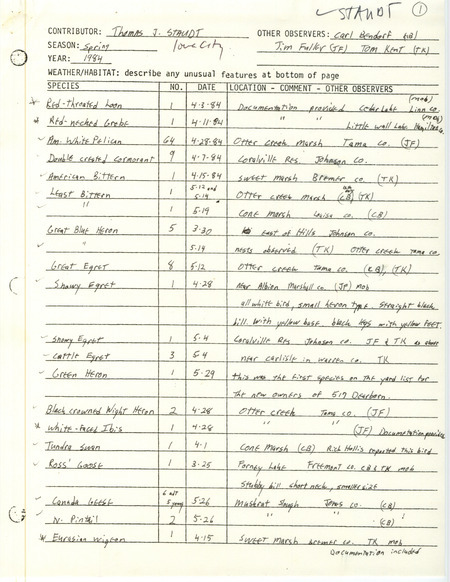 ✓STAUDT ①
CONTRIBUTOR: Thomas J. STAUDT OTHER OBSERVERS: Carl Bendorf (CB)
SEASON: Spring Iowa City Jim Fuller (JF) Tom Kent (TK)
YEAR: 1984
WEATHER/HABITAT: describe any unusual features at bottom of page
SPECIES NO. DATE LOCATION - COMMENT - OTHER OBSERVERS
Red-throated Loon 1 4-3-84 Documentation provided Cedar Lake Linn Co. (mob)
Red-necked Grebe 1 4-11-84 " " Little wall Lake Hamilton Co. (mob)
Am. White Pelican 64 4-28-84 Otter Creek Marsh Tama Co. (JF)
Double crested Cormorant 9 4-7-84 Coralville Res. Johnson Co.
American Bittern 1 4-15-84 Sweet Marsh Bremer Co. (TK)
Least Bittern 1 5-12 and 5-14 Otter Creek Marsh (CB) and (TK)
" 1 5-19 Cone Marsh Louisa Co. (CB)
Great Blue Heron 5 3-30 East of Hills Johnson Co.
" 5-14 nests observed (TK) Otter Creek Tama Co.
Great Egret 8 5-12 Otter Creek Tama Co. (CB), (TK)
Snowy Egret 1 4-28 Near Albion Marshall Co. (JF) mob
all white bird, small heron type. Straight black
bill. with yellow base. black legs with yellow feet.
Snowy Egret 1 5-4 Coralville Res. Johnson Co. JF & TK as above
Cattle Egret 3 5-4 near Carlisle in Warren Co. TK
Green Heron 1 5-29 this was the first species on the yard list for
the new owners of 519 Dearborn.
Black crowned Night Heron 2 4-28 Otter Creek Tama Co. (JF)
White-Faced Ibis 1 4-28 " " (JF) Documentation provided
Tundra Swan 1 4-1 Cone Marsh (CB) Rich Hollis reported this bird
Ross' Goose 1 3-25 Forney Lake Freemont Co. CB & TK mob
Stubby bill short neck, smaller size
Canada Geese 6 adt 5 young 5-26 Muskrat Slough Jones Co. (CB)
N. Pintail 2 5-26 " " (CB)
Eurasian Wigeon 1 4-15 Sweet Marsh Bremer Co. TK mob
Documentation included